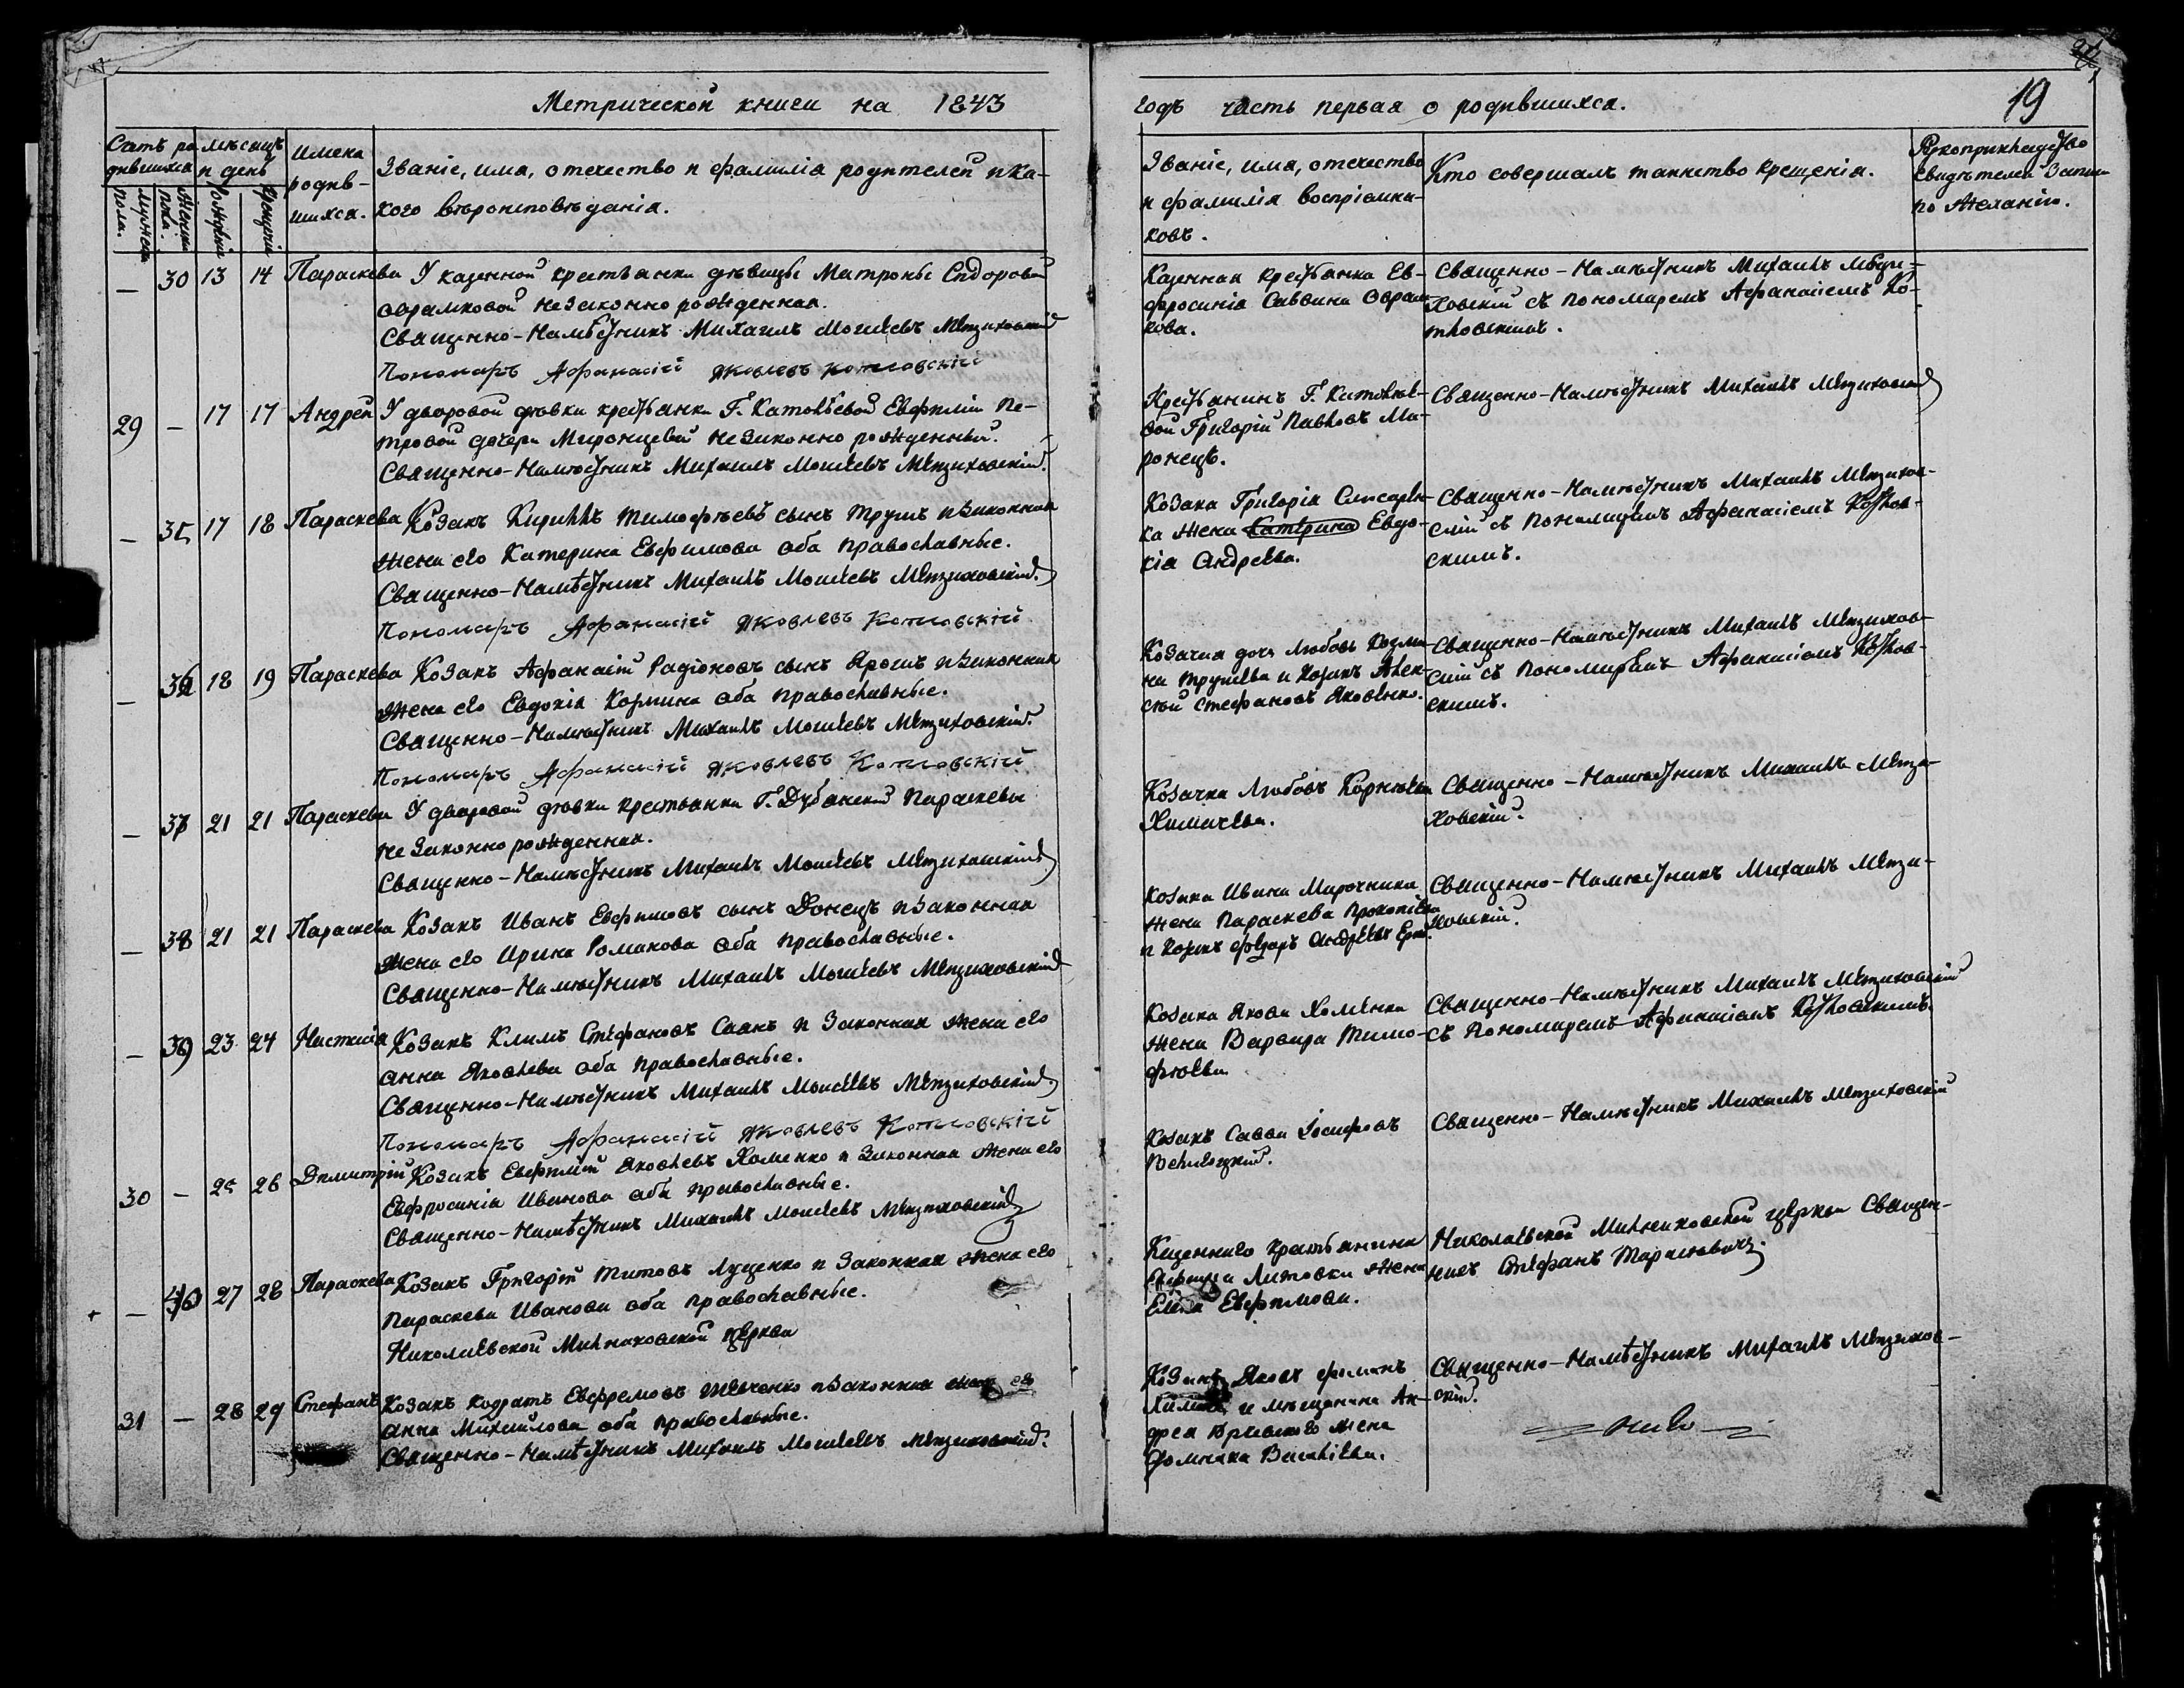 Метрической книги на 1843
годъ часть первая о родившихся.
19
Счетъ ро-
дившихся
мѣсяцъ
и день
Имена
родив-
шихся.
Званіе, имя, отчество и фамилія родителей и ка-
кого вѣроисповѣданія.
Званіе, имя, отчество
и фамилія воспріемни-
ковъ.
Кто совершалъ таинство крещенія.
Рукоприкладство
свидѣтелей записи
по желанію.
— 30 13 14 Параскева У казенной крестьянки дѣвицы Матроны Сидоровой
незаконно рожденная.
Священно-Намѣстникъ Михаилъ Моисеевъ
Пономарь Афанасій Яковлевъ Котловскій
Казенная крестьянка Ев-
фросинія Саввина
кова.
Священно-Намѣстникъ Михаилъ
ховскій съ пономаремъ Афанасіемъ Ко-
тловскимъ.
29 — 17 17 Андрей У дворовой дѣвки крестьянки Г. Евфиміи Пе-
тровой дочери Миронцевой незаконно рожденный.
Священно-Намѣстникъ Михаилъ Моисеевъ
Крестьянинъ Г.
вой Григорій Павловъ Ми-
ронецъ.
Священно-Намѣстникъ Михаилъ
— 35 17 18 Параскева Козакъ Кириллъ Тимофѣевъ сынъ Трушъ и законная
жена его Катерина Евфимова оба православные.
Священно-Намѣстникъ Михаилъ Моисеевъ
Пономарь Афанасій Яковлевъ Котловскій
Козака Григорія Слюсарен-
ка жена Катерина Евдо-
кія Андреева.
Священно-Намѣстникъ Михаилъ
скій съ Пономаремъ Афанасіемъ Котлов-
скимъ.
— 36 18 19 Параскева Козакъ Афанасій Радіоновъ сынъ Ярошъ и законная
жена его Евдокія Кормина оба православные.
Священно-Намѣстникъ Михаилъ Моисеевъ
Пономарь Афанасій Яковлевъ Котловскій
Козачая дочь Любовь Козми-
на Трушева и Козакъ Алек-
сѣй Стефановъ Яковенко.
Священно-Намѣстникъ Михаилъ
скій съ Пономаремъ Афанасіемъ Котлов-
скимъ.
— 37 21 21 Параскева У дворовой дѣвки крестьянки Г. Параскевы
незаконно рожденная.
Священно-Намѣстникъ Михаилъ Моисеевъ
Козачка Любовь Корнѣева
Химичева.
Священно-Намѣстникъ Михаилъ
ховскій.
— 38 21 21 Параскева Козакъ Иванъ Евфимовъ сынъ Донецъ и законная
жена его Ирина Романова оба православные.
Священно-Намѣстникъ Михаилъ Моисеевъ
Козака Ивана Мирочника
жена Параскева Прокопіева
и Козакъ Федоръ Андреевъ
Священно-Намѣстникъ Михаилъ
ховскій.
— 39 23 24 Настасія Козакъ Климъ Стефановъ Саянъ и законная жена его
Анна Яковлева оба православные.
Священно-Намѣстникъ Михаилъ Моисеевъ
Пономарь Афанасій Яковлевъ Котловскій
Козака Якова Хоменка
жена Варвара Тимо-
фѣева.
Священно-Намѣстникъ Михаилъ
съ Пономаремъ Афанасіемъ Котловскимъ.
30 — 25 26 Димитрій Козакъ Евфимій Яковлевъ Хоменко и законная жена его
Евфросинія Иванова оба православные.
Священно-Намѣстникъ Михаилъ Моисеевъ
Козакъ Савва Іосифовъ
Священно-Намѣстникъ Михаилъ
— 40 27 28 Параскева Козакъ Григорій Титовъ Луценко и законная жена его
Параскева Иванова оба православные.
Николаевской церкви
Казеннаго крестьянина
Литовки жена
Елена Евфимова.
Николаевской церкви Священ-
никъ Стефанъ Тарасовичъ.
31 — 28 29 Стефанъ Козакъ Кодратъ Евфремовъ и законная жена его
Анна Михайлова оба православные.
Священно-Намѣстникъ Михаилъ Моисеевъ
Козакъ Яковъ
и мѣщанина Ан-
дрея жена
Домника Василіева.
Священно-Намѣстникъ Михаилъ
скій.